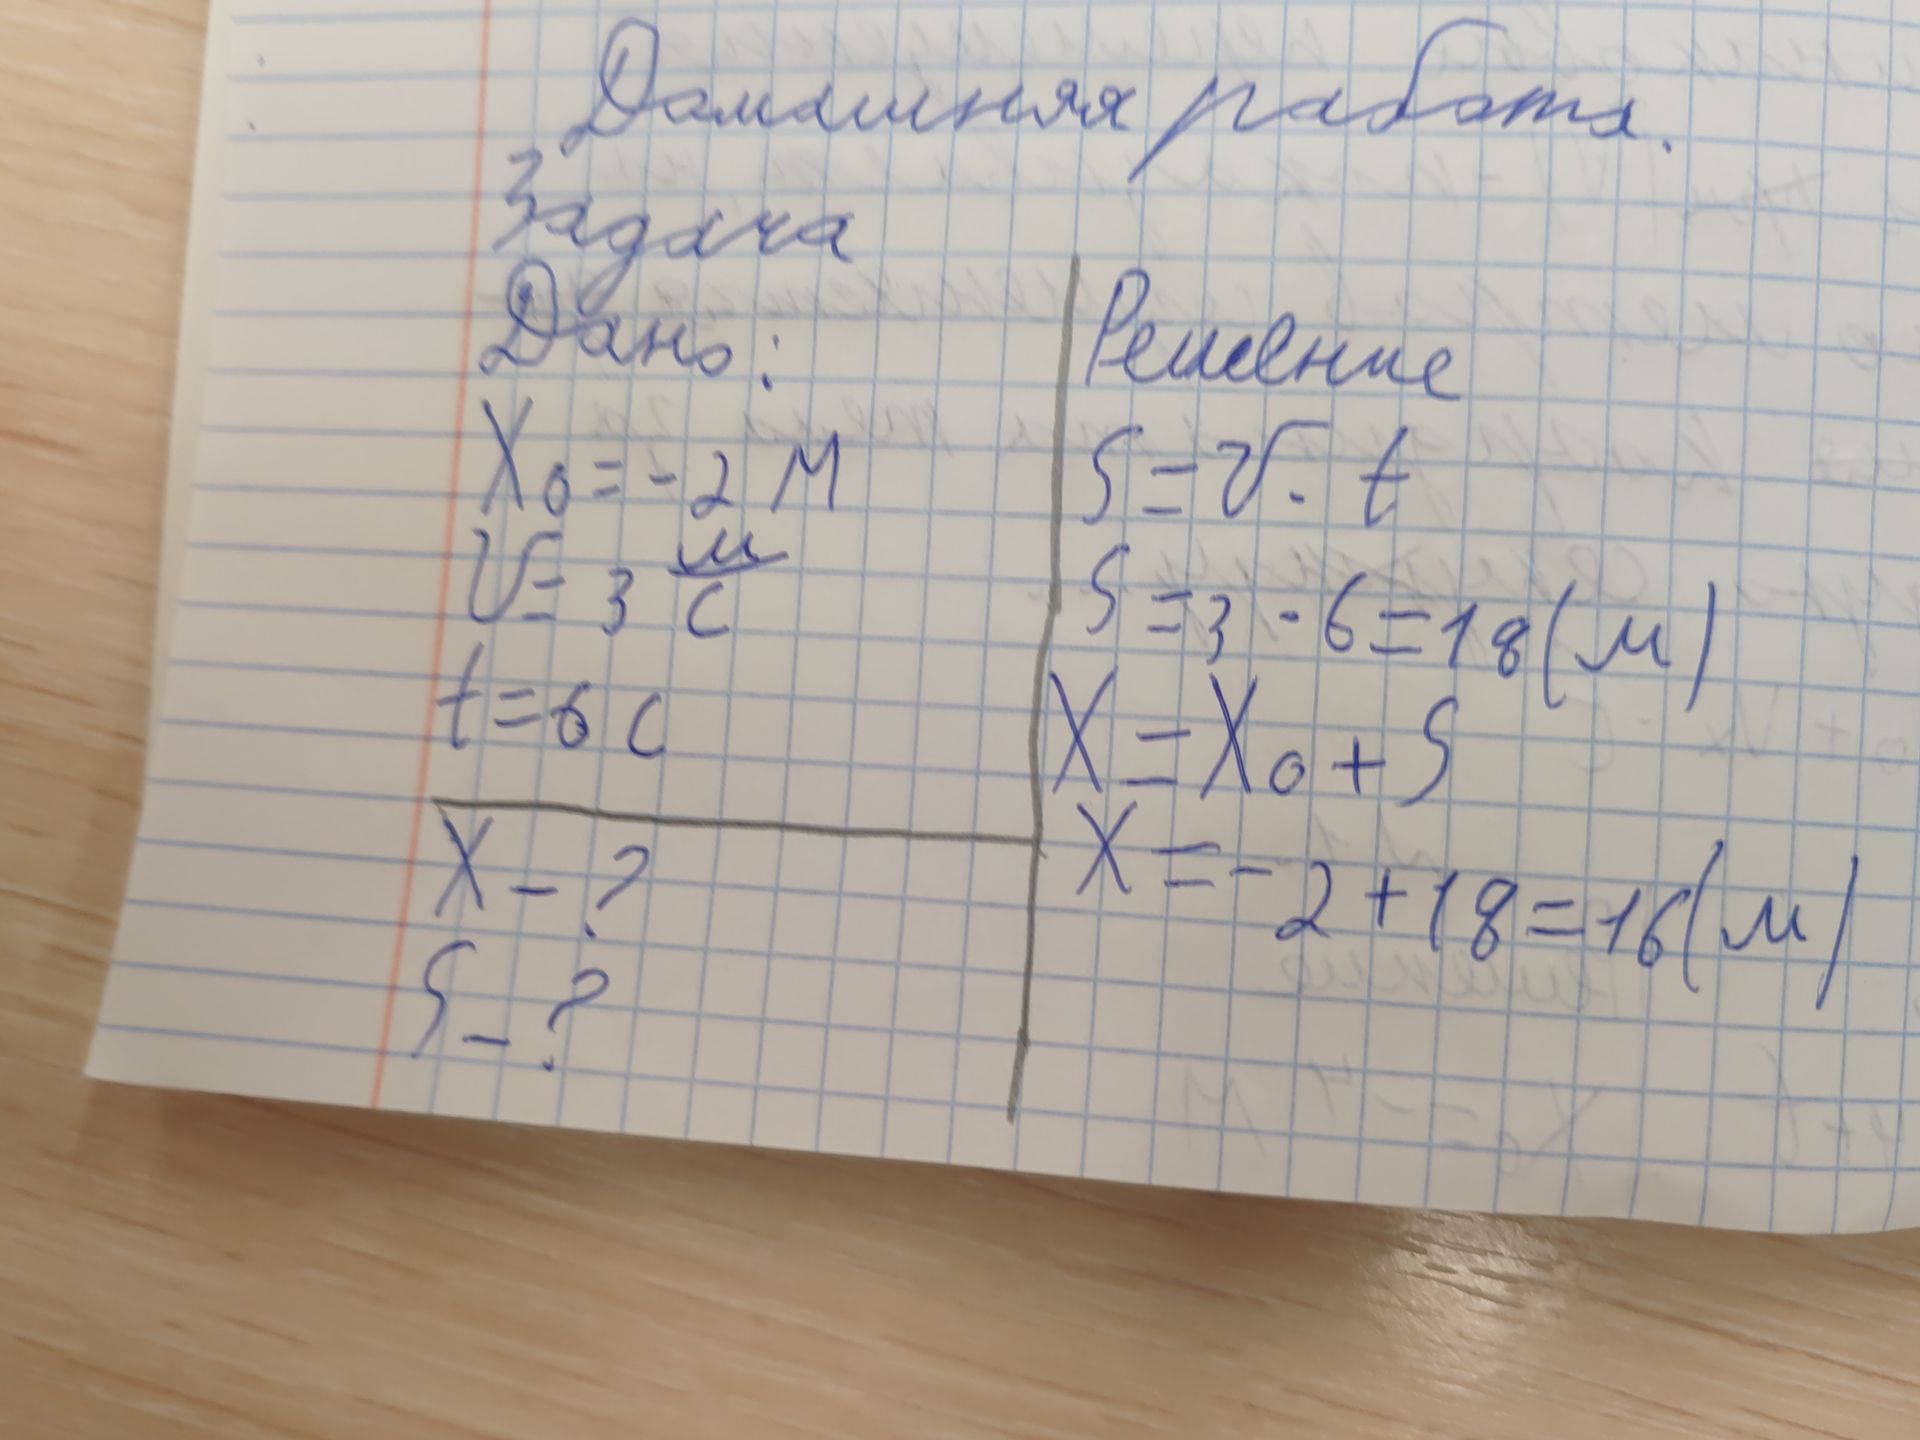 Домашняя работа.
Задача
Дано:
X₀ = -2 м
V = 3 м/с
t = 6 с
X - ?
S - ?
Решение
S = V · t
S = 3 · 6 = 18 (м)
X = X₀ + S
X = -2 + 18 = 16 (м)